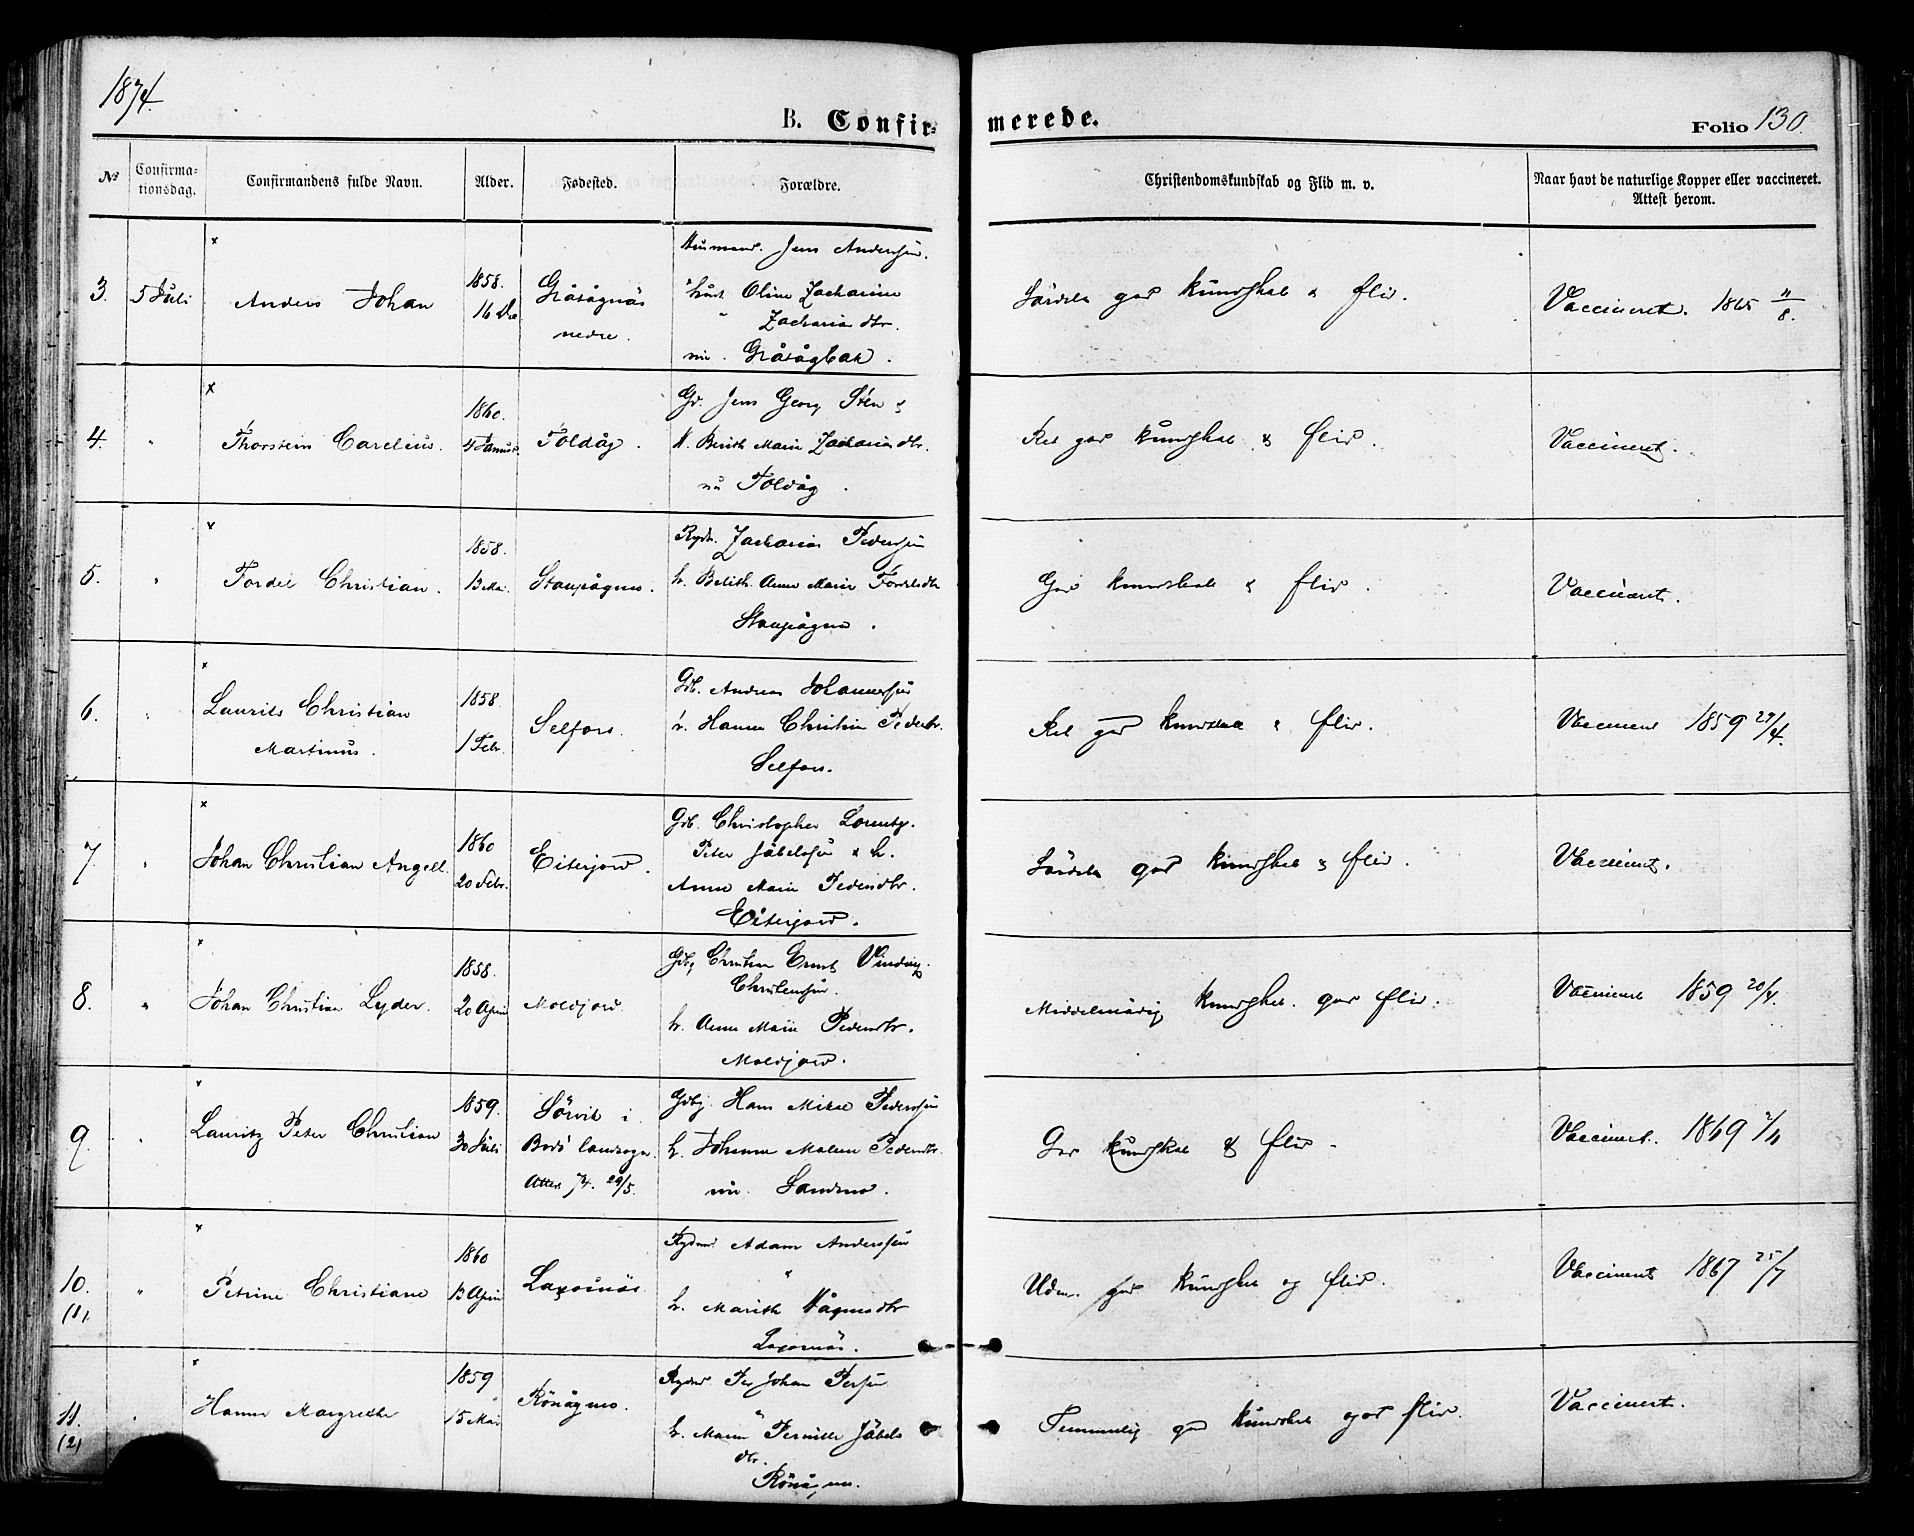 1874.
B. Confirmerede.
Folio 130.
№ Confirmationsdag. Confirmandens fulde Navn. Alder. Fødested. Forældre. Christendomskundskab og Flid m. v. Naar havt de naturlige Kopper eller vaccineret. Attest herom.
3. 5 Juli Anders Johan
1858.
16
nedre.
Jens Anderssen.
Oline Zacharine
Zachariasdtr.
Gråtågbak.
god kundskab & flid.
Vaccineret. 1865 11/8.
4. " Thorstein Carelius.
1860.
4 Januar
Toldåg.
Gd. Jens Georg Sten &
H. Berith Marie Zachariasdtr.
nu Toldåg.
Rel god kundskab & flid.
Vaccineret.
5. " Tordel Christian.
1858.
13 Mai.
Staupågmo.
Zacharias Pederssen
h. Berith Anne Marie Tordelsdtr
Staupågmo.
God kundskab & flid.
Vaccineret.
6. " Laurits Christian
Martinus.
1858
1 Febr.
Selfors.
Gdb. Andreas Johannessen
Hanna Christin Pedersdtr.
Selfors.
Rel god kundskab & flid.
Vaccineret 1859 29/4.
7. " Johan Christian Angell.
1860
20 Febr.
Eiterjord.
Gdb. Christopher Lorentz.
Peter Jäbelssen & h.
Anne Marie Pedersdtr.
Eiterjord.
god kundskab & flid.
Vaccineret.
8. " Johan Christian Lyder.
1858.
20 April
Moldjord.
Christian Ernst
Christenssen.
h. Anne Marie Pedersdtr.
Moldjord.
Middelmådig kundskab. god flid.
Vaccineret 1859 20/4.
9. " Lauritz Peter Christian
1859.
30 Juli
Sörvik i
Bodö landsogn.
Attest 74. 29/5.
Hans Mikal Pederssen
h. Johanna Malene Pedersdtr.
nu. Sandmo.
God kundskab & flid.
Vaccineret. 1869 2/11
10.
(1).
" Petrine Christiane
1860
13 April
Laxosnäs.
Adam Anderssen
h. Marith Vågmosdtr
Laxosnäs.
Udm. god kundskab og flid.
Vaccineret 1867 25/7
11.
(2)
" Hanna Margrethe
1859
15 Mai
Rönågmo.
Per Johan Perssen
h. Maria Pernille Jäbels
dtr.
Rönågmo.
Temmelig god kundskab god flid.
Vaccineret.